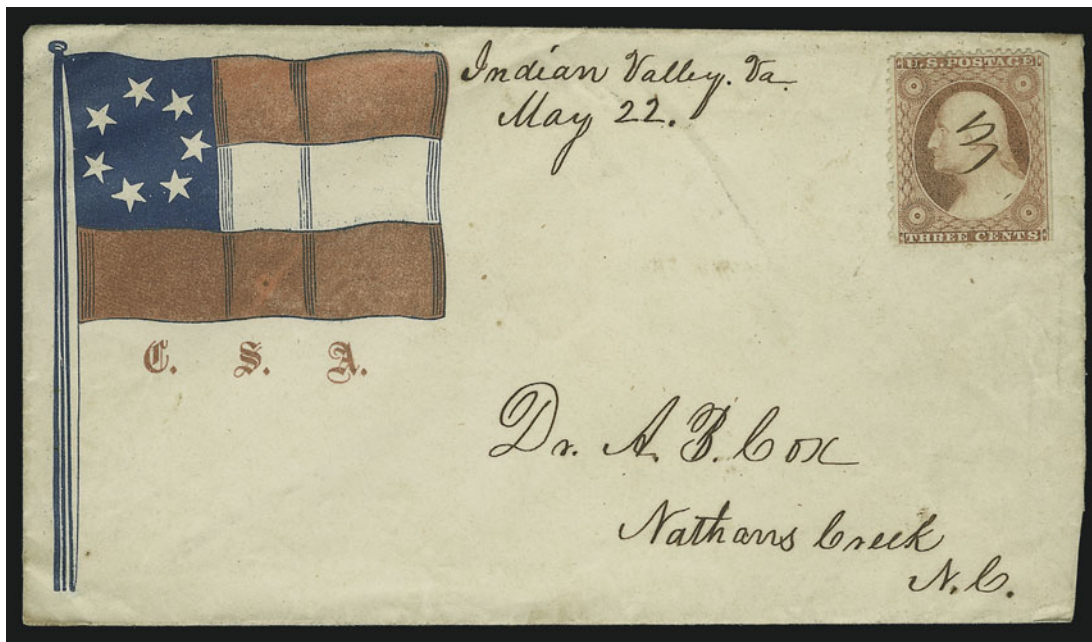 Indian Valley. Va.
May 22.
U.S. POSTAGE
THREE CENTS
C. S. A.
Dr. A. B. Cox
Nathans Creek
N. C.